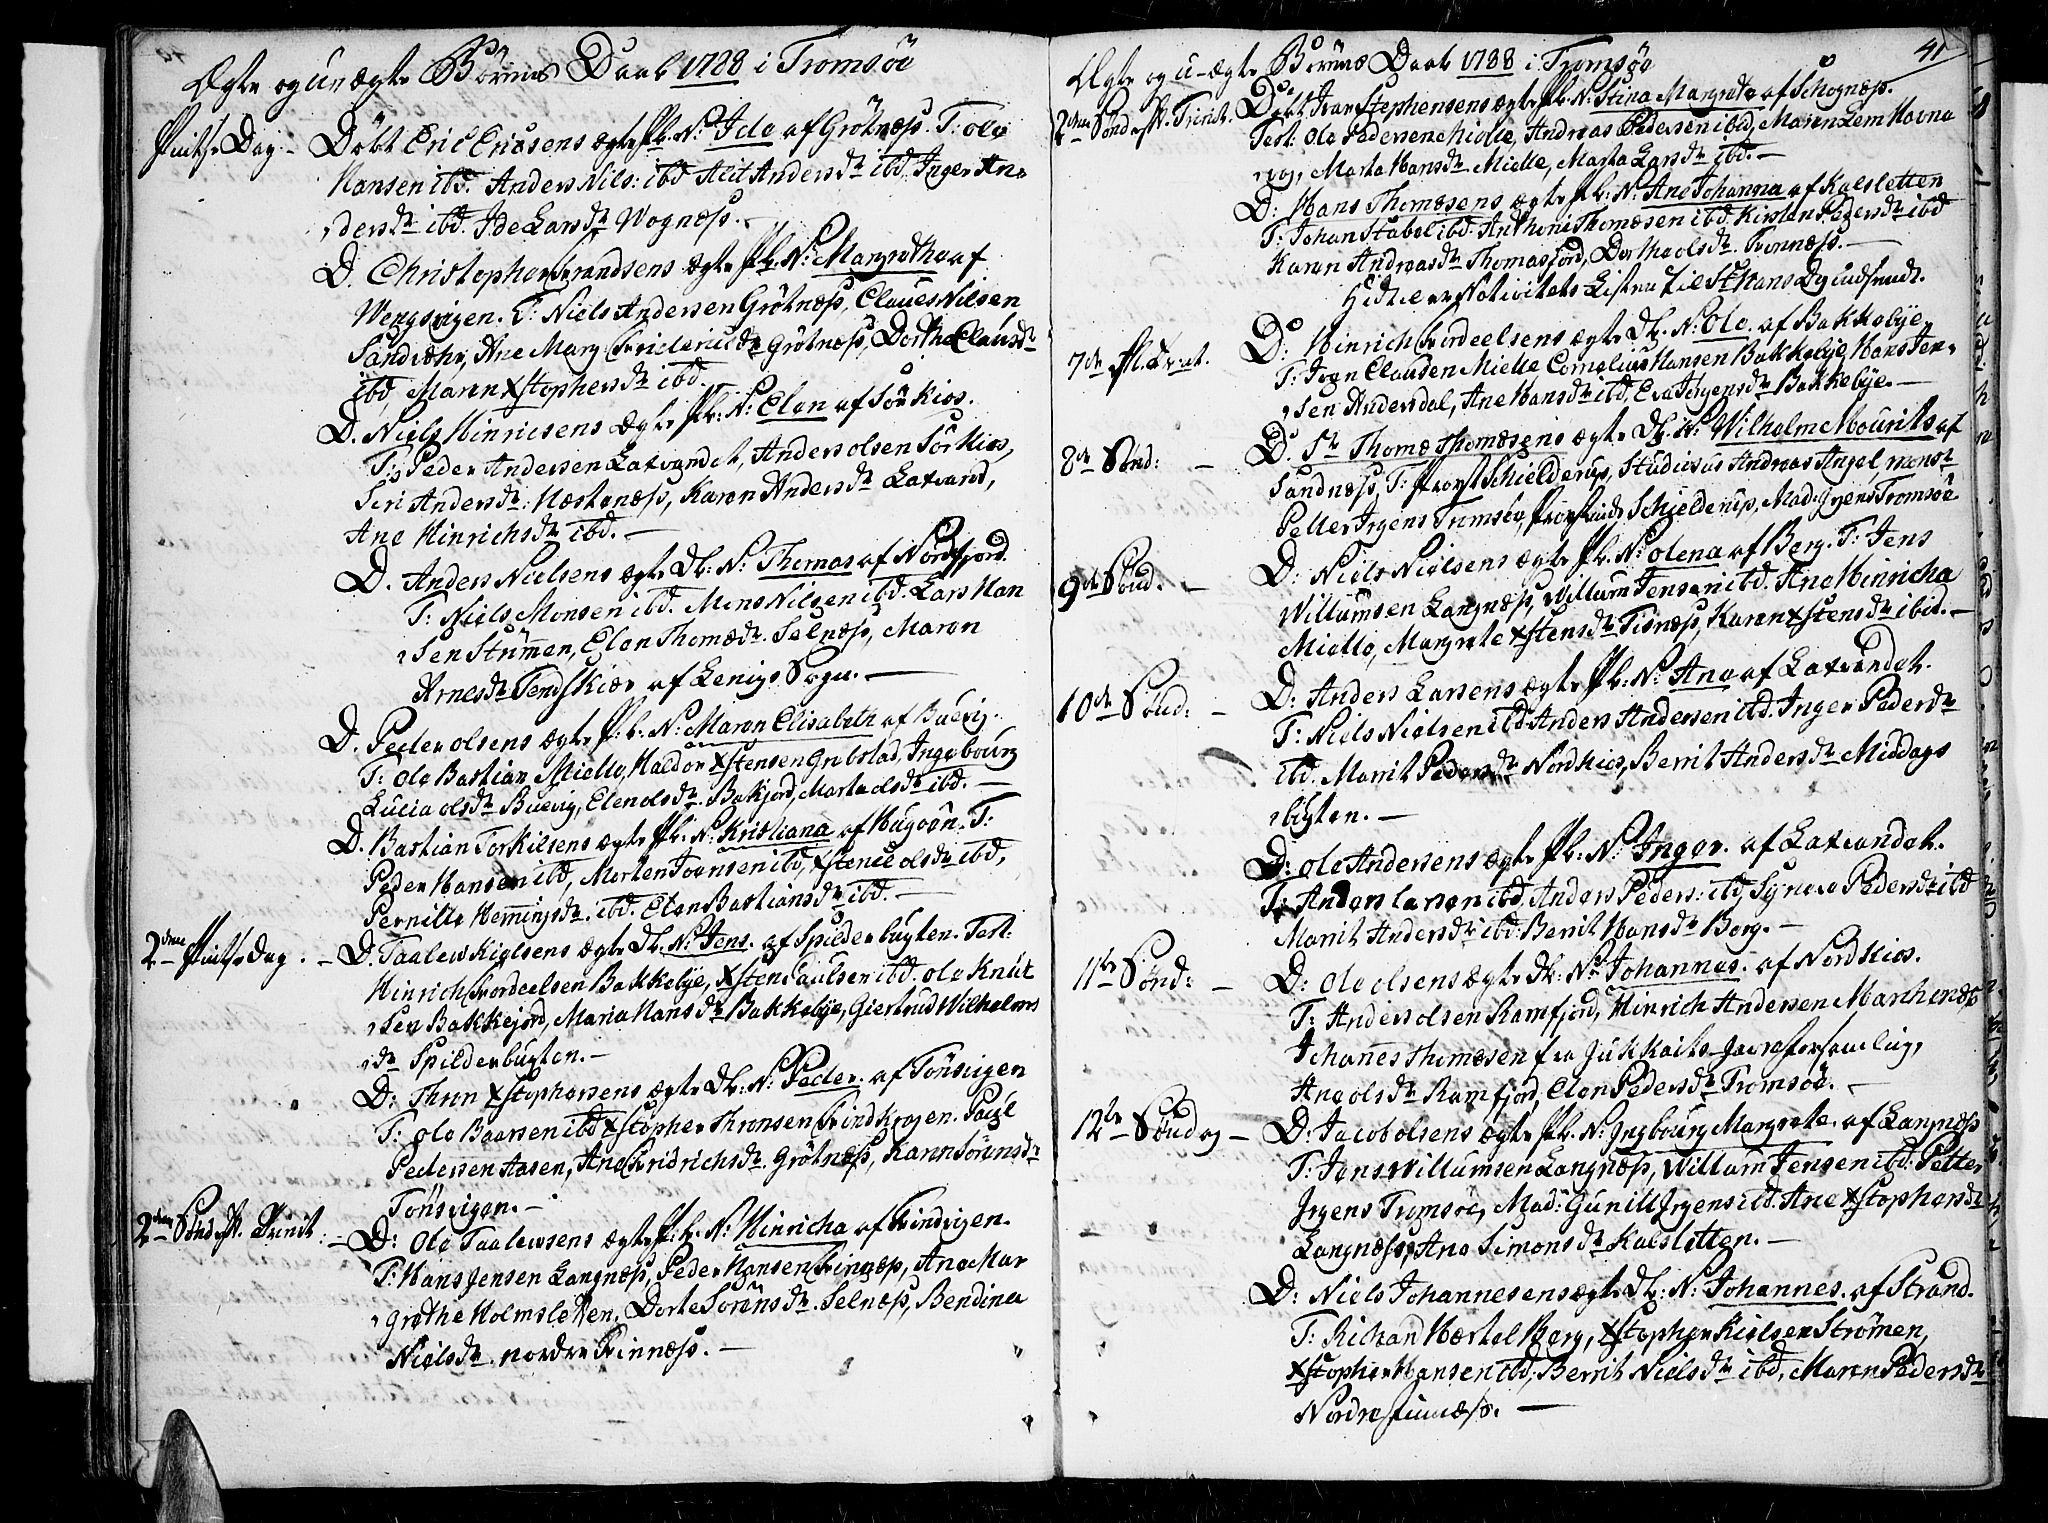 Ægte og Uægte Børnes Daab 1788 i Tromsöe
Pintse Dag - Döbt Eric Ericsens ægte Pb: N: Ide af Grötnæss. T: Ole
Hansen ibd. Anders Nils: ibd Alit Andersdr ibd. Inger An-
dersdr ibd. Ide Larsdr Wognæss. -
D. Christopher Frandsens ægte Pb. N: Margrethe af
Wengsvigen. T: Niels Andersen Grötnæss, Claues Nilsen
Sandvæhr, Ane Marg Fridericsdr Grötnæss, Dorthe Clausdr
ibd, Maren Xstophersdr ibd.
D. Niels Hinricsens ægte Pb: N: Elen af Sörkios.
T: Peder Andersen Laxvandet, Anders olsen Sörkios,
Siri Andersdr: Næstenæss, Karen Andersdr Laxvand,
Ane Hinrichsdr ibd. -
D. Anders Nielsens ægte Db: N: Thomas af Nordfjord.
T: Niels Monsen ibd. Mons Nilsen ibd. Lars Han
sen Stummen, Elen Thomædr. Selnæss, Maren
Arnesdr Tendskiær af Lenigs Sogn. -
D. Peder olsens ægte P:b. N: Maren Elisabeth af Buevig.
T: Ole Bastian Mielle, Haldor Xstensen Grebstad, Ingebourg
Lucia olsdr Buevig, Elen olsdr. Bakjord, Marta olsdr ibd. -
D. Bastian Torkilsens ægte Pb. N: Kristiana af Hugöen. T:
Peder Hansen ibd, Morten Joensen ibd, Xstence olsdr ibd,
Pernille Hemingsdr. ibd. Elen Bastiansdr ibd. -
2den Pintse Dag. - D. Taalew Kielsens ægte Db. N: Jens. af Spilderbugten. Test:
Hinrich Fordeelsen Bakkebye, Xsten Paulsen ibd. ole Knut
sen Bakkejord, Maria Hansdr Bakkebye, Giertrud Wilhelms
dr Spilderbugten. -
D: Thron Xstophersens ægte Db. N: Peder. af Tönsvigen
T: Ole Baarsen ibd Xstopher Thronsen Findkrogen. Paul
Pedersen Aasen, Ane Fridrichsdr. Grötnæss, Karen Sörensdr
Tönsvigen. -
2den Sönd. P. Trinit: - D: Ole Taalewsens ægte P:b. N: Hinricha af Findvigen.
T: Hans Jensen Langnæss, Peder Hansen Finnæss, Ane Mar
grethe Holmsletten, Dorte Sorensdr. Selnæss, Bendina
Nielsdr. nordre Finnæss. -
41
Ægte og U-ægte Børnes Daab 1788 i Tromsöe
2den Sönd. P. Trinit. Döbt Ivar Stephensens ægte Pb. N: Stina Margrete af Schognæss.
Test: Ole Pedersen Mielle, Andreas Pedersen ibid, Maren Lem Havne
vog, Marta Hansdr Mielle, Marta Larsdr ibd. -
D: Hans Thomæsens ægte Pb: N: Ane Johanna af Kalsletten
T: Johan Stabel ibd. Anthoni Thomæsen ibd. Kirsten Pedersdr ibd
Karen Andreasdr Thomasfjord, Dorthe olsdr. Tennæss. -
Hidtil er Nativitets Listen til St Hans Dag indsendt.
7de P. Trinit. D: Hinrich Fordeelsens ægte Db. N: Ole. af Bakkebye,
T: Iver Clausen Mielle Cornelius Hansen Bakkebye, Hans Jen-
sen Andersdal, Ane Hansdr ibd, Eva Jörgensdr Bakkebye. -
8de Sönd: - D. Sr Thomæ Thomæsens ægte Db. N: Wilhelm Mourits af
Sandnæss, T: Provst Schielderup, Studiosus Andreas Angel, Monsr
Petter Irgens Tromsöe, Provstinde Schielderup, Mad: Irgens Tromsöe
9de Sönd. - D: Niels Nielsens ægte Pb. N: olena af Berg. T: Jens
Willumsen Langnæss, Willum Jensen ibd. Ane Hinricha
Mielle, Margrete Xstensdr Tisnæss, Karen Xstensdr ibid. -
10de Sönd: - D: Anders Larsens ægte Pb: N: Ane af Laxvandet.
T: Niels Nielsen ibd. Anders Andersen ibd. Inger Pedersdr
ibd. Marrit Pedersdr Nordkios, Berrit Andersdr Middags
bugten. -
D: ole Andersens ægte Pb. N: Inger. af Laxvandet.
T: Anders Larsen ibd, Anders Peders: ibd, Synneve Pedersdr ibd
Marrit Andersdr ibd. Berrit Hansdr Berg. -
11te Sönd: - D: ole olsens ægte Db: N: Johannes. af Nordkios.
T: Anders olsen Ramfjord, Hinrich Andersen Marhenæss
Johannes Thomæsen fra Jukkaits Javreforsamling,
Ane olsdr Ramfjord, Elen Pedersdr Tromsöe. -
12te Söndag - D: Jacob olsens ægte Pb. N: Ingbourg Margrete. af Langnæss
T: Jens Willumsen Langnæss, Willum Jensen ibd: Petter
Irgens Tromsöe, Mad: Gunill Irgens ibd. Ane Xstophersdr
Langnæss, Ane Simonsdr Kalsletten. -
D: Niels Johannesens ægte Db: N: Johannes. af Strand.
T: Richard Hærtel Berg, Xstopher Kielsen Strömen,
Xstopher Hansen ibd, Berrit Nielsdr ibd, Maren Pedersdr
Nordre finnæss. -